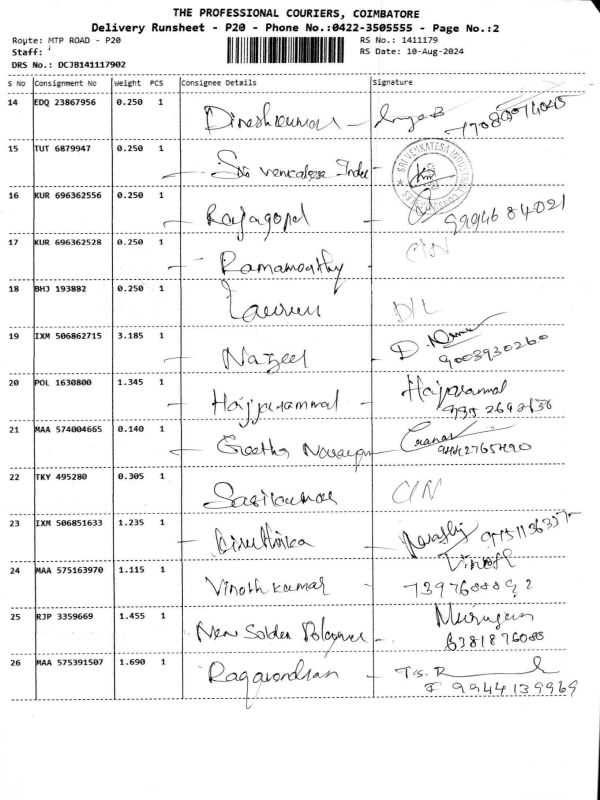 THE PROFESSIONAL COURIERS, COIMBATORE
Delivery Runsheet - P20 - Phone No.:0422-3505555 - Page No.:2
Route: MTP ROAD - P20 RS No.: 1411179
Staff: RS Date: 10-Aug-2024
DRS No.: DCJB141117902
S No Consignment No Weight PCS Consignee Details Signature
14 EDQ 23867956 0.250 1
Dineshkumar
15 TUT 6879947 0.250 1
Sri Venkatesa
16 KUR 696362556 0.250 1
Rajagopal 99946 84021
17 KUR 696362528 0.250 1 C/N
Ramamoorthy
18 BHJ 193882 0.250 1
D/L
19 IXM 506862715 3.185 1
Nazeel D. 9003930260
20 POL 1630800 1.345 1
Hajjarammal Hajjarammal
21 MAA 574004665 0.140 1
Geetha
22 TKY 495280 0.305 1
Sasikumar C/N
23 IXM 506851633 1.235 1
24 MAA 575163970 1.115 1 Vinoth
Vinoth kumar
25 RJP 3359669 1.455 1 Murugan
New Golden 6381876085
26 MAA 575391507 1.690 1
Ragavendran T.S.R
9944139969